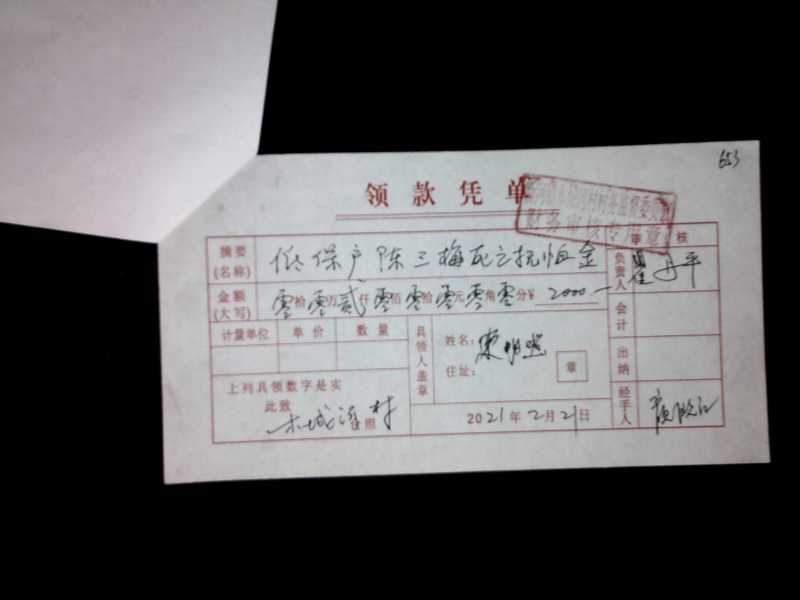 653
领款凭单
财务审核专用章
审核
摘要(名称) 低保户陈三梅死亡抚恤金
负责人 翟丹平
金额(大写) 零拾零万贰仟零佰零拾零元零角零分¥ 2000.—
会计
计量单位 单价 数量
具领人盖章
姓名:
住址:
章
出纳
上列具领数字是实
此致
照
2021年2月21日
经手人